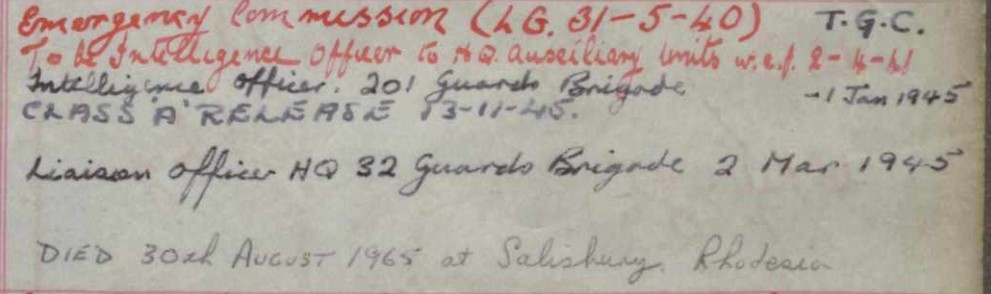 Emergency Commission (LG. 31-5-40) T.G.C.
To be Intelligence Officer to HQ. Auxiliary Units w.e.f. 2-4-41
Intelligence Officer. 201 Guards Brigade -1 Jan 1945
CLASS 'A' RELEASE 13-11-45.
Liaison Officer HQ 32 Guards Brigade 2 Mar 1945
DIED 30th AUGUST 1965 at Salisbury, Rhodesia